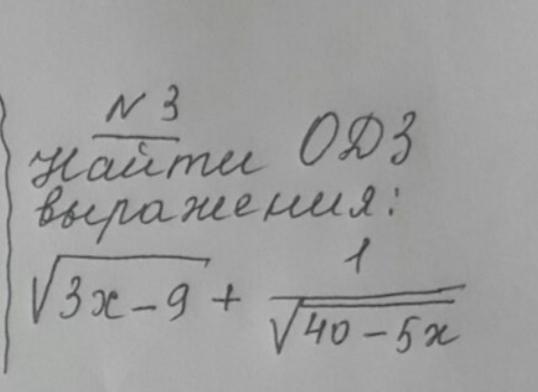 N 3
Найти ОДЗ
выражения:
√3x-9 + 1/√40-5x